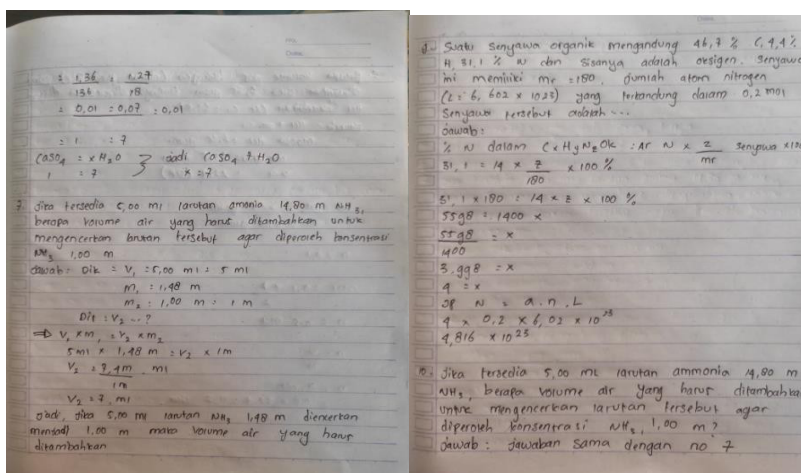 = 1,36 : 1,27
136 18
= 0,01 = 0,07 : 0,01
= 1 = 7
CaSO4 = x H2O } Jadi CaSO4 7 H2O
1 = 7 x = 7
7. Jika tersedia 5,00 ml larutan amonia 14,80 m NH3,
berapa volume air yang harus ditambahkan untuk
mengencerkan larutan tersebut agar diperoleh konsentrasi
NH3 1,00 m
Jawab : Dik = V1 = 5,00 ml = 5 ml
M1 = 1,48 m
M2 = 1,00 m = 1 m
Dit : V2 ...?
⇒ V1 x M1 = V2 x M2
5 ml x 1,48 m = V2 x 1m
V2 = 7,4m . ml
1m
V2 = 7, ml
Jadi, Jika 5,00 ml larutan NH3 1,48 m diencerkan
menjadi 1,00 m maka volume air yang harus
ditambahkan
Suatu senyawa organik mengandung 46,7 % C, 4,4 %
H, 31,1 % N dan sisanya adalah oksigen. Senyawa
ini memiliki mr = 180. Jumlah atom nitrogen
(L = 6, 602 x 1023) yang terkandung dalam 0,2 mol
Senyawa tersebut adalah ...
Jawab :
% N dalam CxHyNzOk = Ar N x z senyawa x100
mr
31,1 = 14 x z x 100 %
180
31,1 x 180 = 14 x z x 100 %
5598 = 1400 x
5598 = x
1400
3,998 = x
4 = x
N = a . n . L
4 x 0,2 x 6,02 x 10 23
4,816 x 10 23
10. Jika tersedia 5,00 ml larutan ammonia 14,80 m
NH3, berapa volume air yang harus ditambahka
untuk mengencerkan larutan tersebut agar
diperoleh konsentrasi NH3, 1,00 m ?
Jawab : Jawaban sama dengan no 7